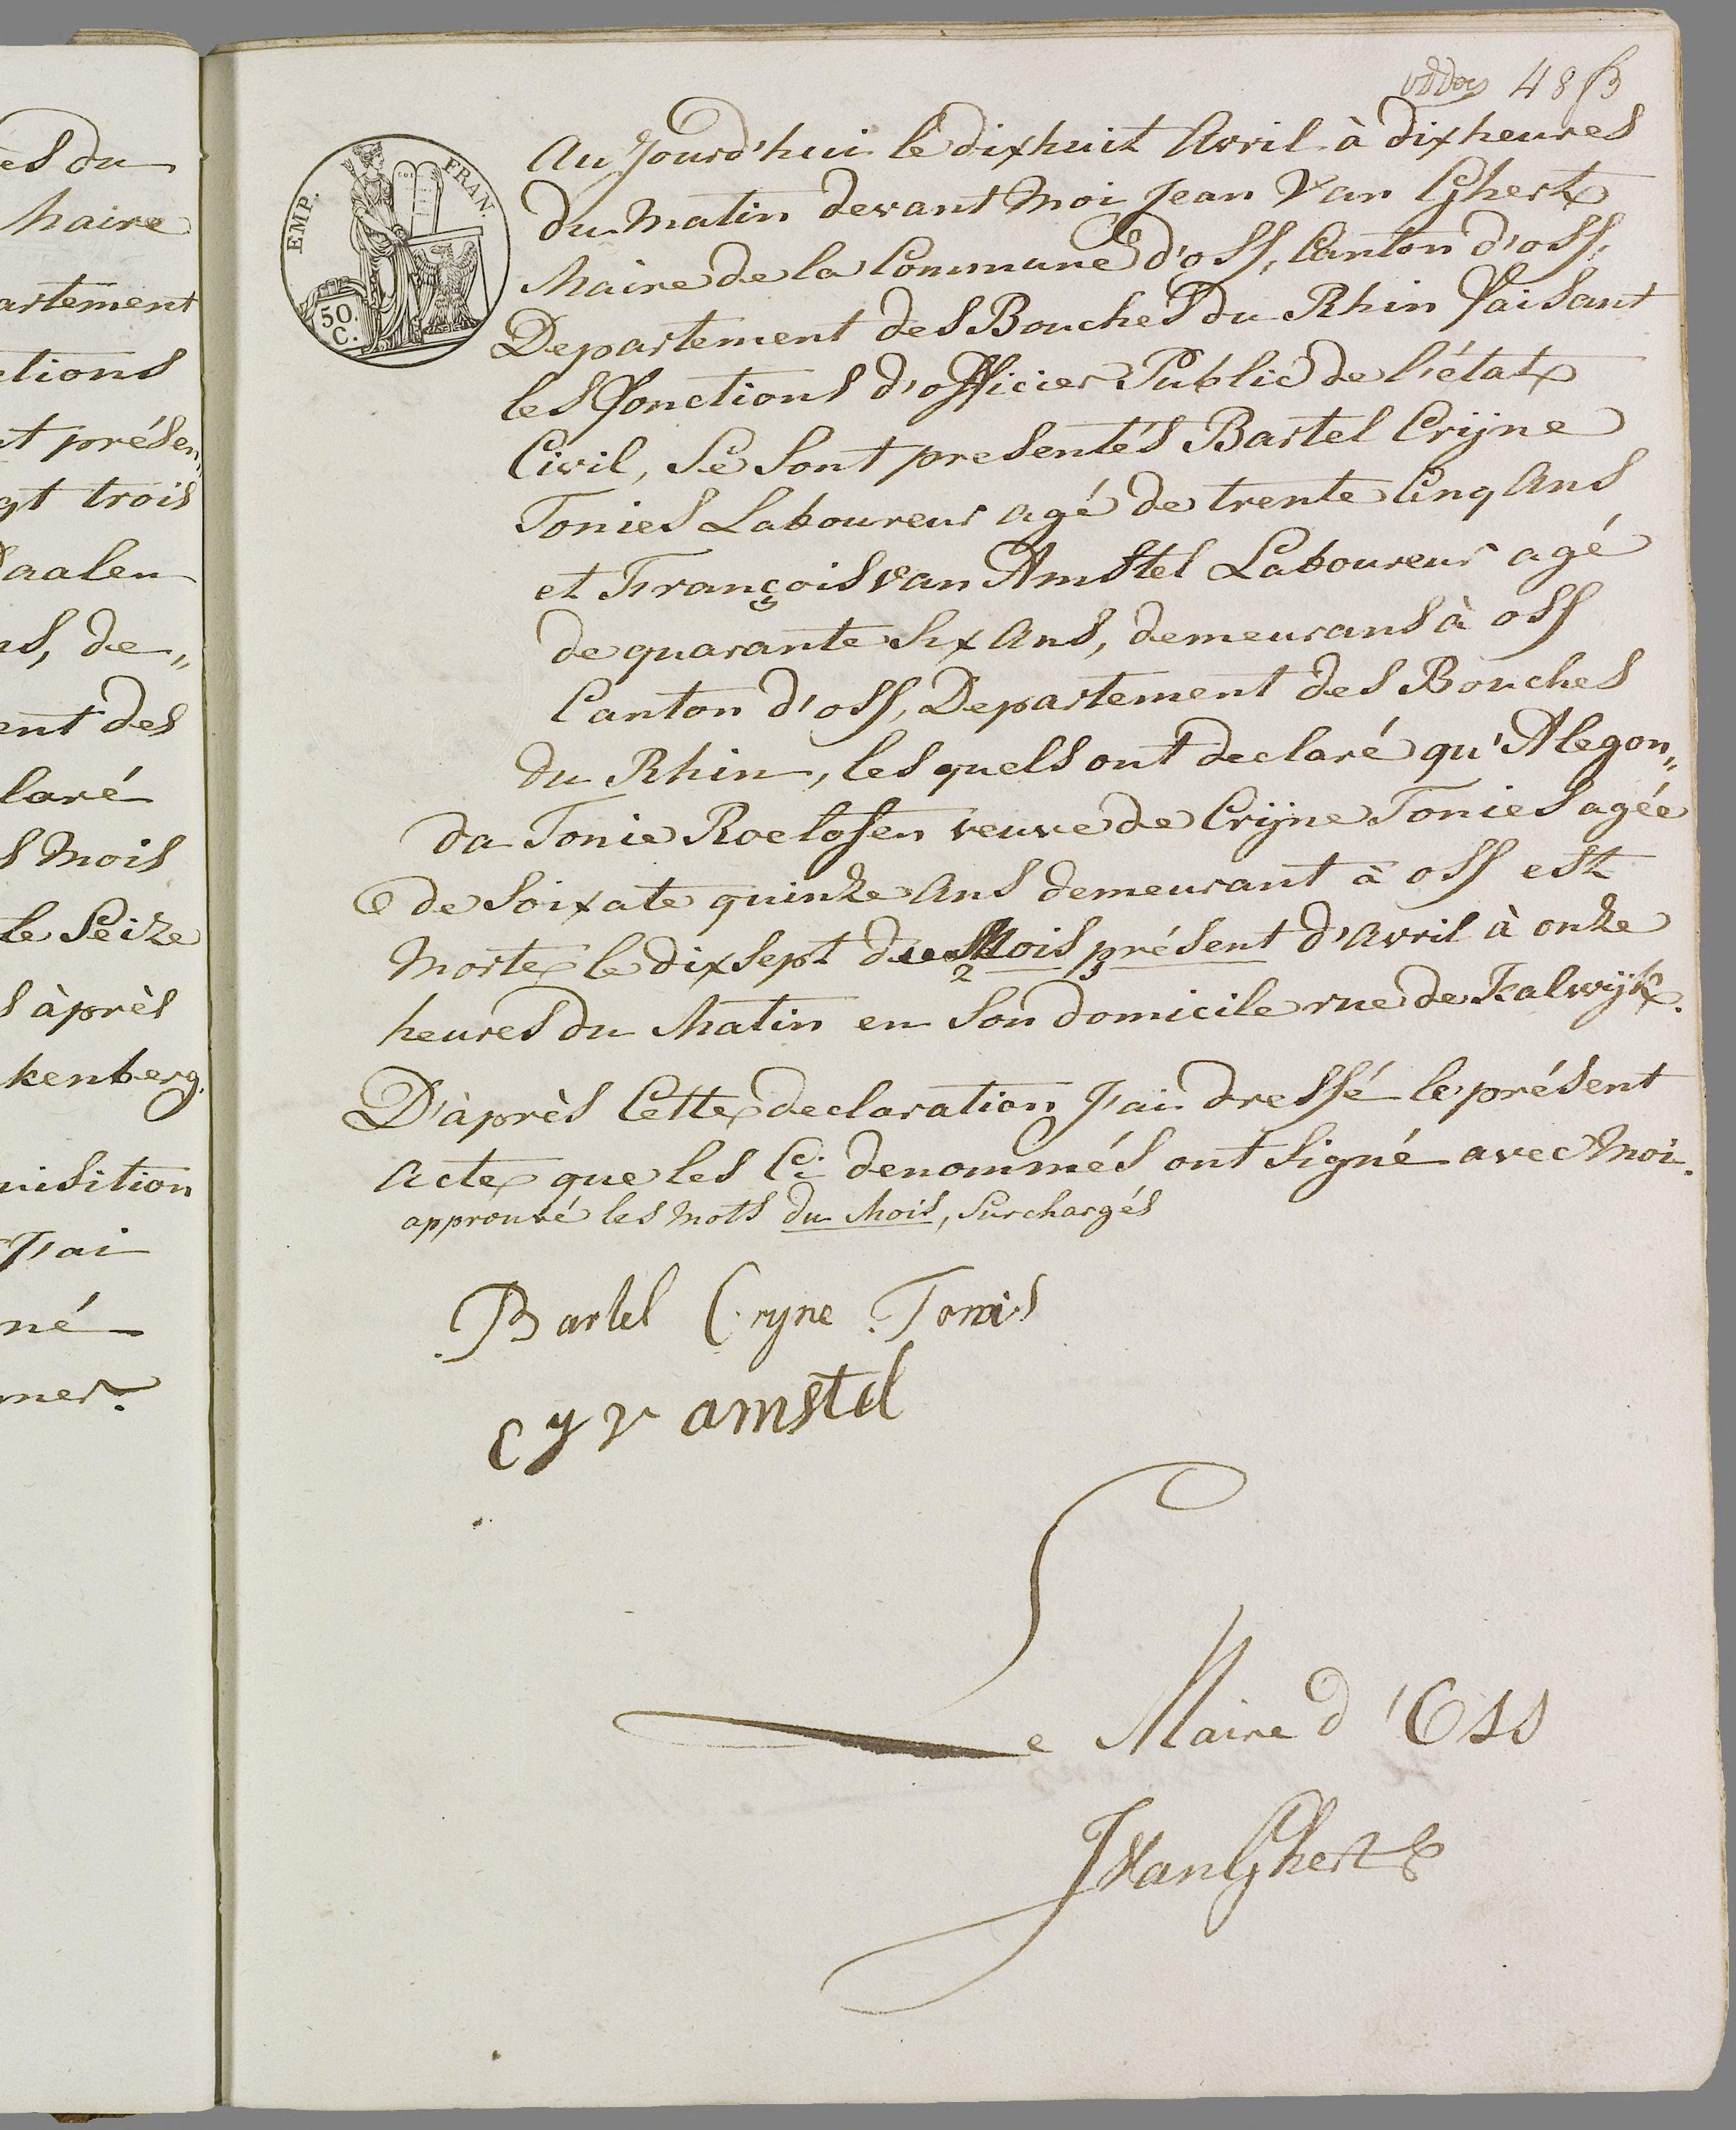 es du
Maire
artement
ctions
t présen„
gt trois
aalen
ns, de„
ent des
laré
s Mois
le Seize
s àprès
kenberg.
uisition
J'ai
né
mer.
48
EMP. FRAN.
50.
C.
Aujourd'hui le dixhuit Avril à dix heures
du Matin devant Moi Jean Van Ghert
Maire de la Commune d'oss, Canton d'oss,
Departement des Bouches du Rhin faisant
les fonctions d'officier Public de l'état
Civil, Se Sont presentés Bartel Crijne
Tonies Laboureur agé de trente Cinq Ans
et François van Amstel Laboureur agé
de quarante Six Ans, demeurans à oss
Canton d'oss, Departement des Bouches
du Rhin, les quels ont declaré qu'Alegon„
da Tonie Roelofsen veuve de Crijne Tonies agée
de Soixate quinze Ans demeurant à oss est
Morte le dixsept du Mois présent d'Avril à onze
heures du Matin en Son domicile rue de Kalwijk.
D'àprès Cette declaration J'ai dressé le présent
Acte que les Ci denommés ont Signé avec Moi.
approuvé les Mots du Mois, Surchargés
Bartel Cryne Tonis
v amstel
Le Maire d'Oss
JVanGhert